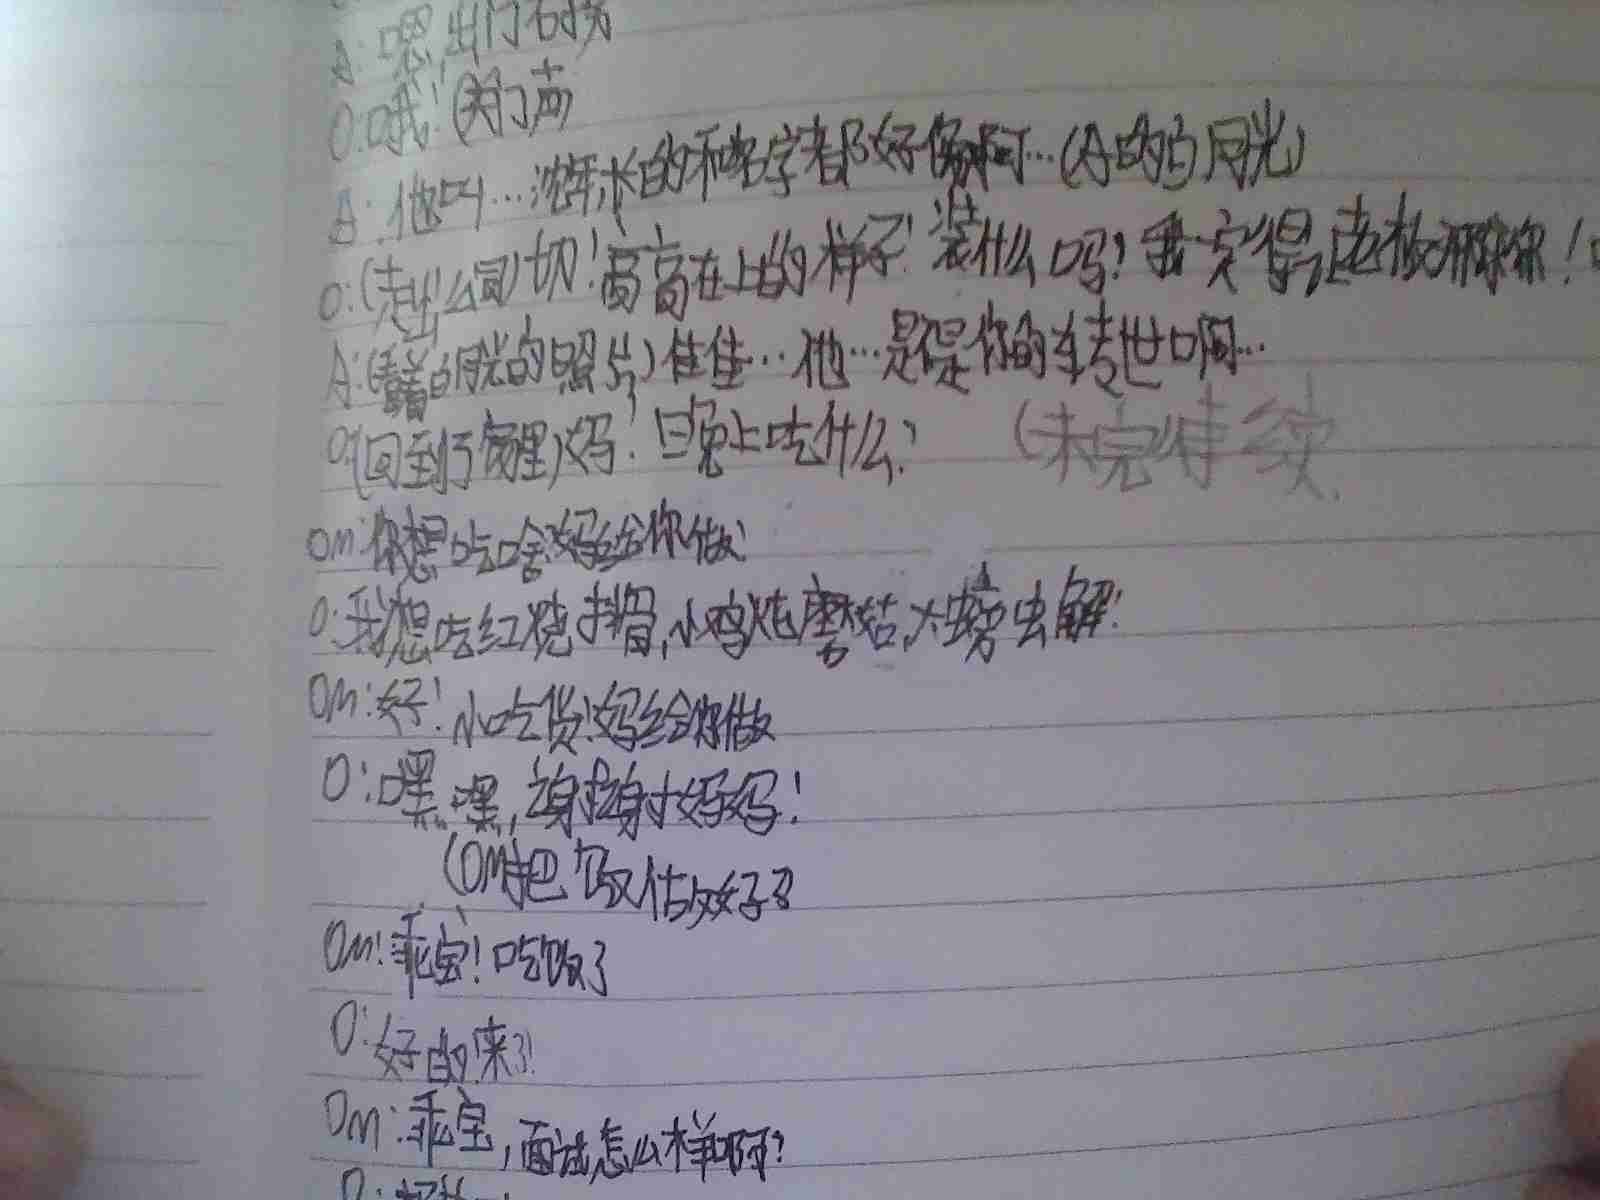 A:嗯,出门右拐
O:哦!(关门声)
A:他叫…沈年,长的和名字都好像啊…(A的白月光)
O:(走出公司)切!高高在上的样子!装什么吗?我一定得,老板
A:(看着白月光的照片)佳佳…他…是不是你的转世啊…
O:(回到房里)妈!晚上吃什么? (未完待续
Om:你想吃啥?妈给你做!
O:我想吃红烧排骨,小鸡炖蘑菇,大螃蟹!
Om:好!小吃货!妈给你做
O:嘿嘿,谢谢妈妈!
(OM把饭做好了
Om:乖宝!吃饭了
O:好的!来了!
Om:乖宝,面试怎么样啊?